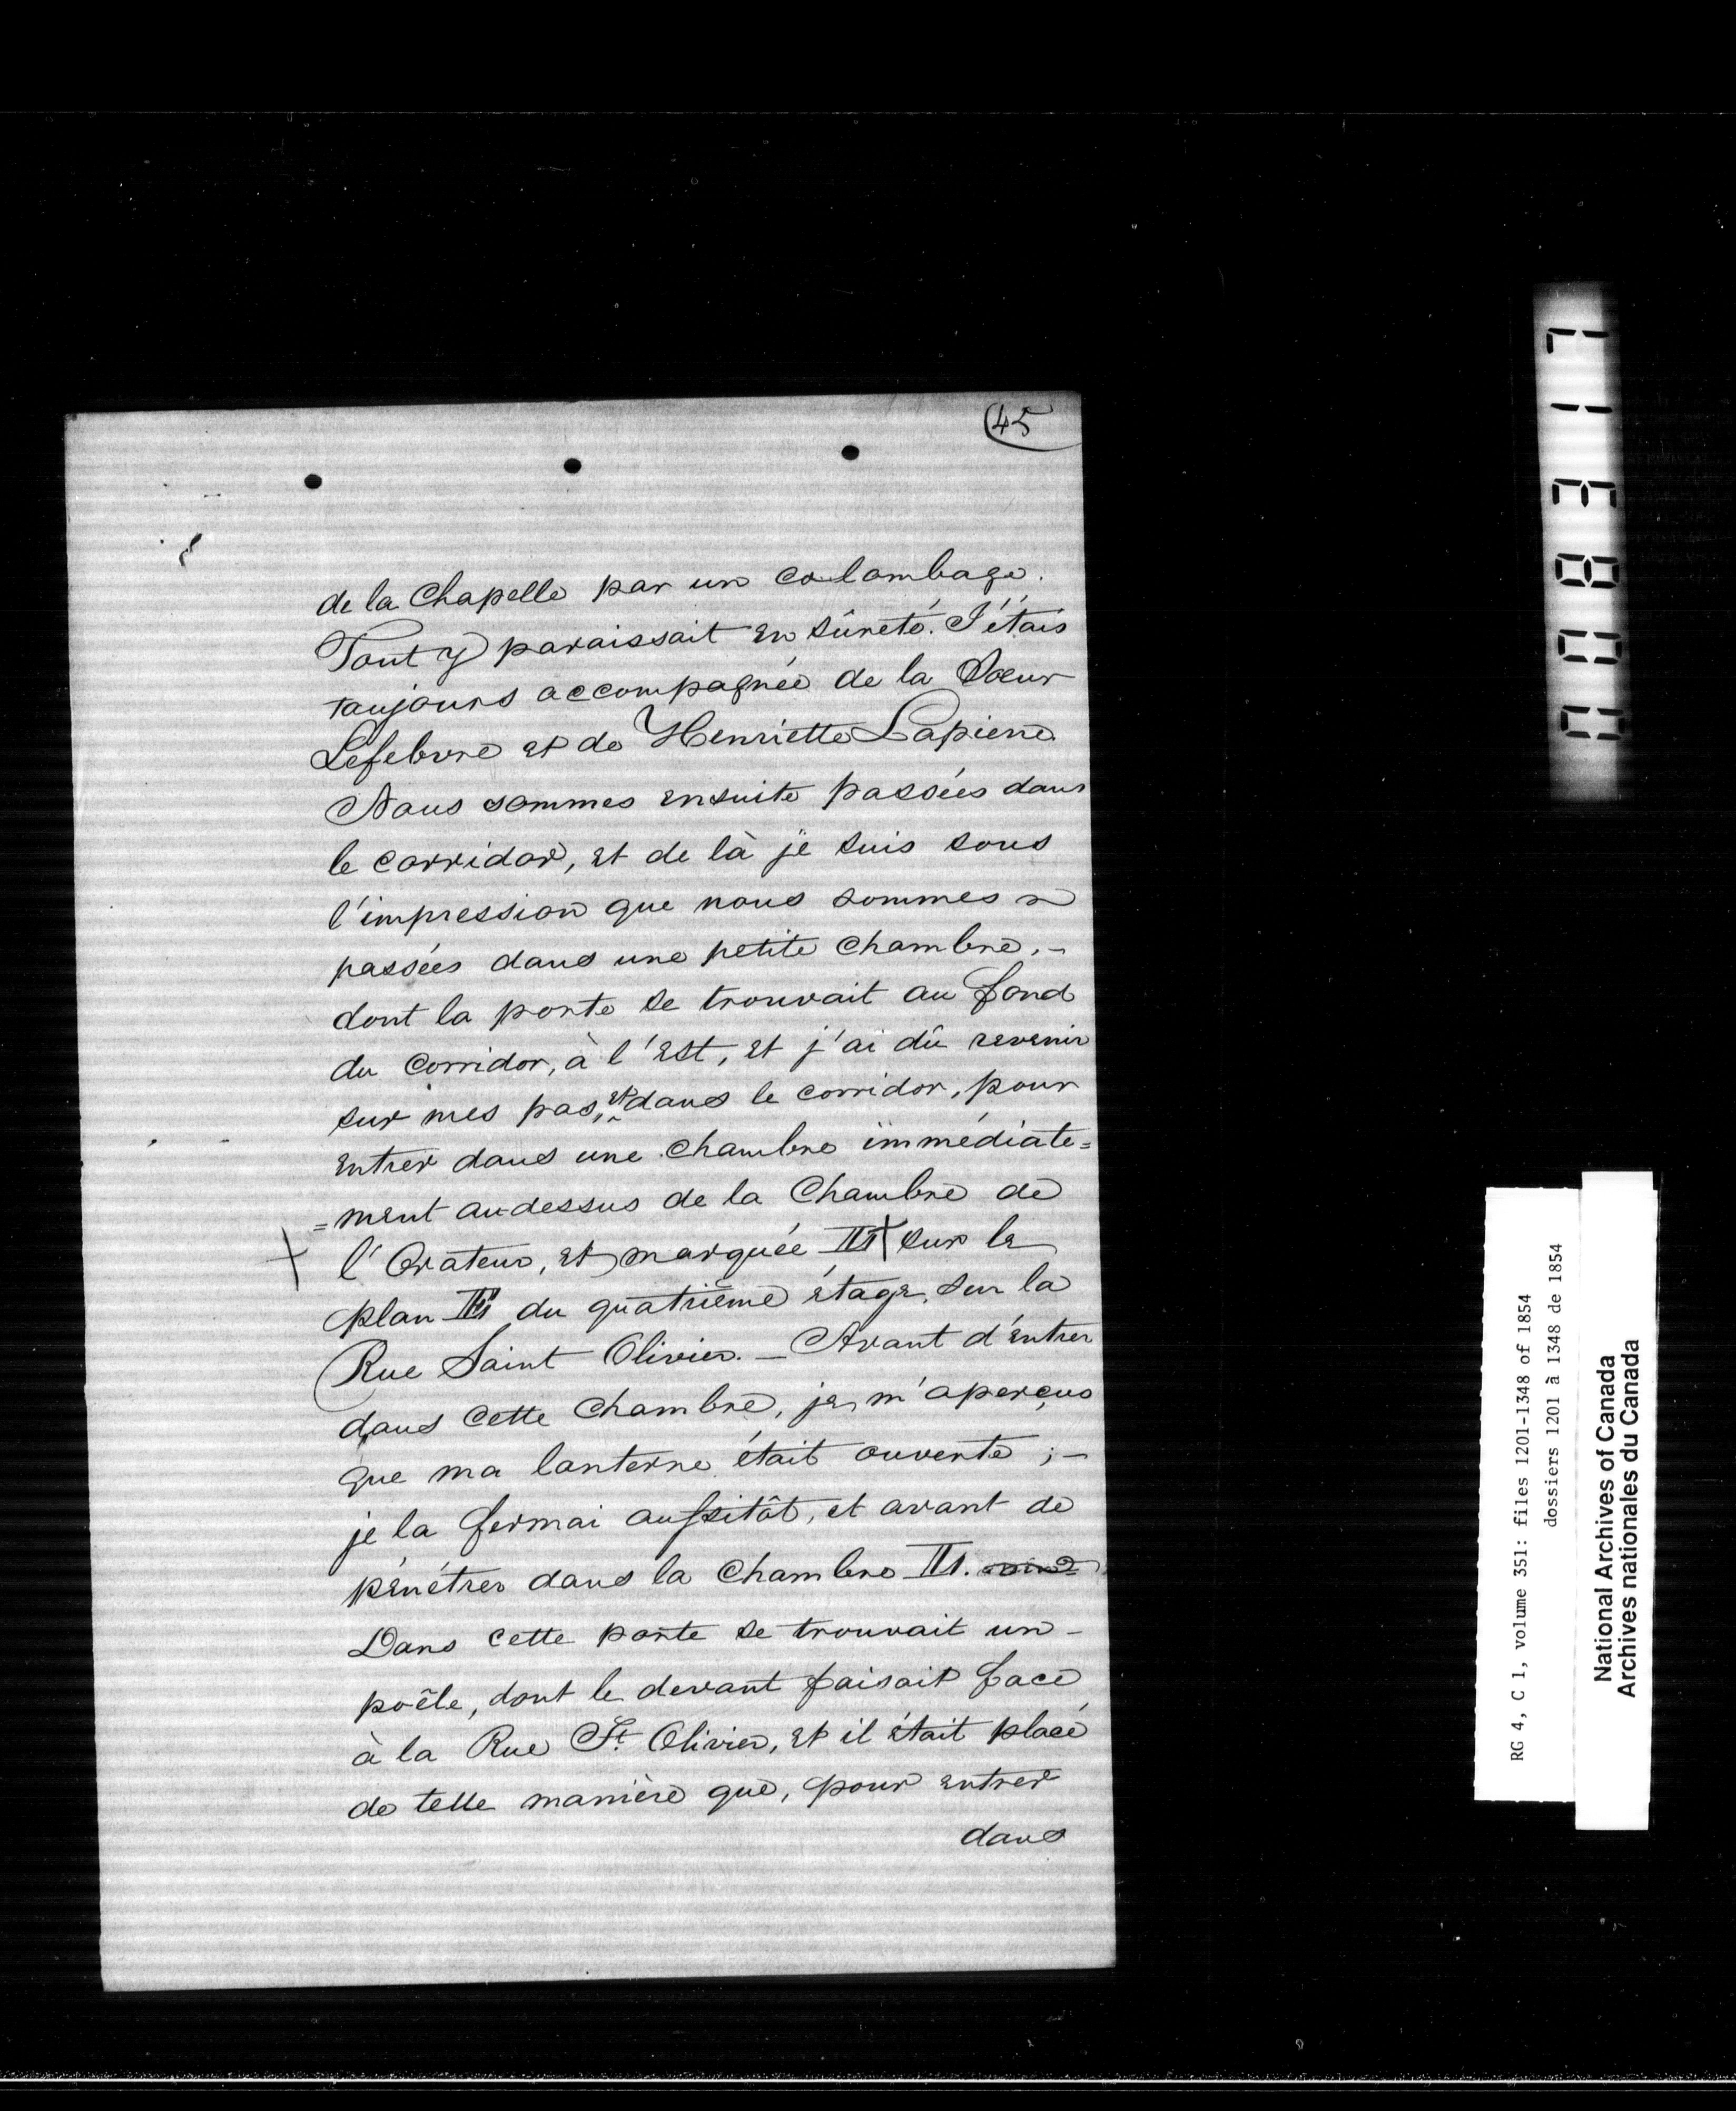 45
de la Chapelle par un colombage.
Tout y paraissait en sûreté. J'étais
toujours accompagnée de la Sœur
Lefebvre et de Henriette Lapierre
Nous sommes ensuite passées dans
le corridor, et de là je suis sous
l'impression que nous sommes
passées dans une petite chambre, -
dont la porte se trouvait au fond
du corridor, à l'est, et j'ai dû revenir
sur mes pas, et dans le corridor, pour
entrer dans une chambre immédiate=
=ment au-dessus de la Chambre de
l'Orateur, et marquée sur le
plan du quatrième étage, sur la
Rue Saint Olivier. - Avant d'entrer
dans cette chambre, je m'aperçus
que ma lanterne était ouverte ; -
je la fermai aussitôt, et avant de
pénétrer dans la chambre
Dans cette porte se trouvait un -
poêle, dont le devant faisait face
à la Rue St. Olivier, et il était placé
de telle manière que, pour entrer
dans
008317
RG 4, C 1, volume 351: files 1201-1348 of 1854
dossiers 1201 à 1348 de 1854
National Archives of Canada
Archives nationales du Canada